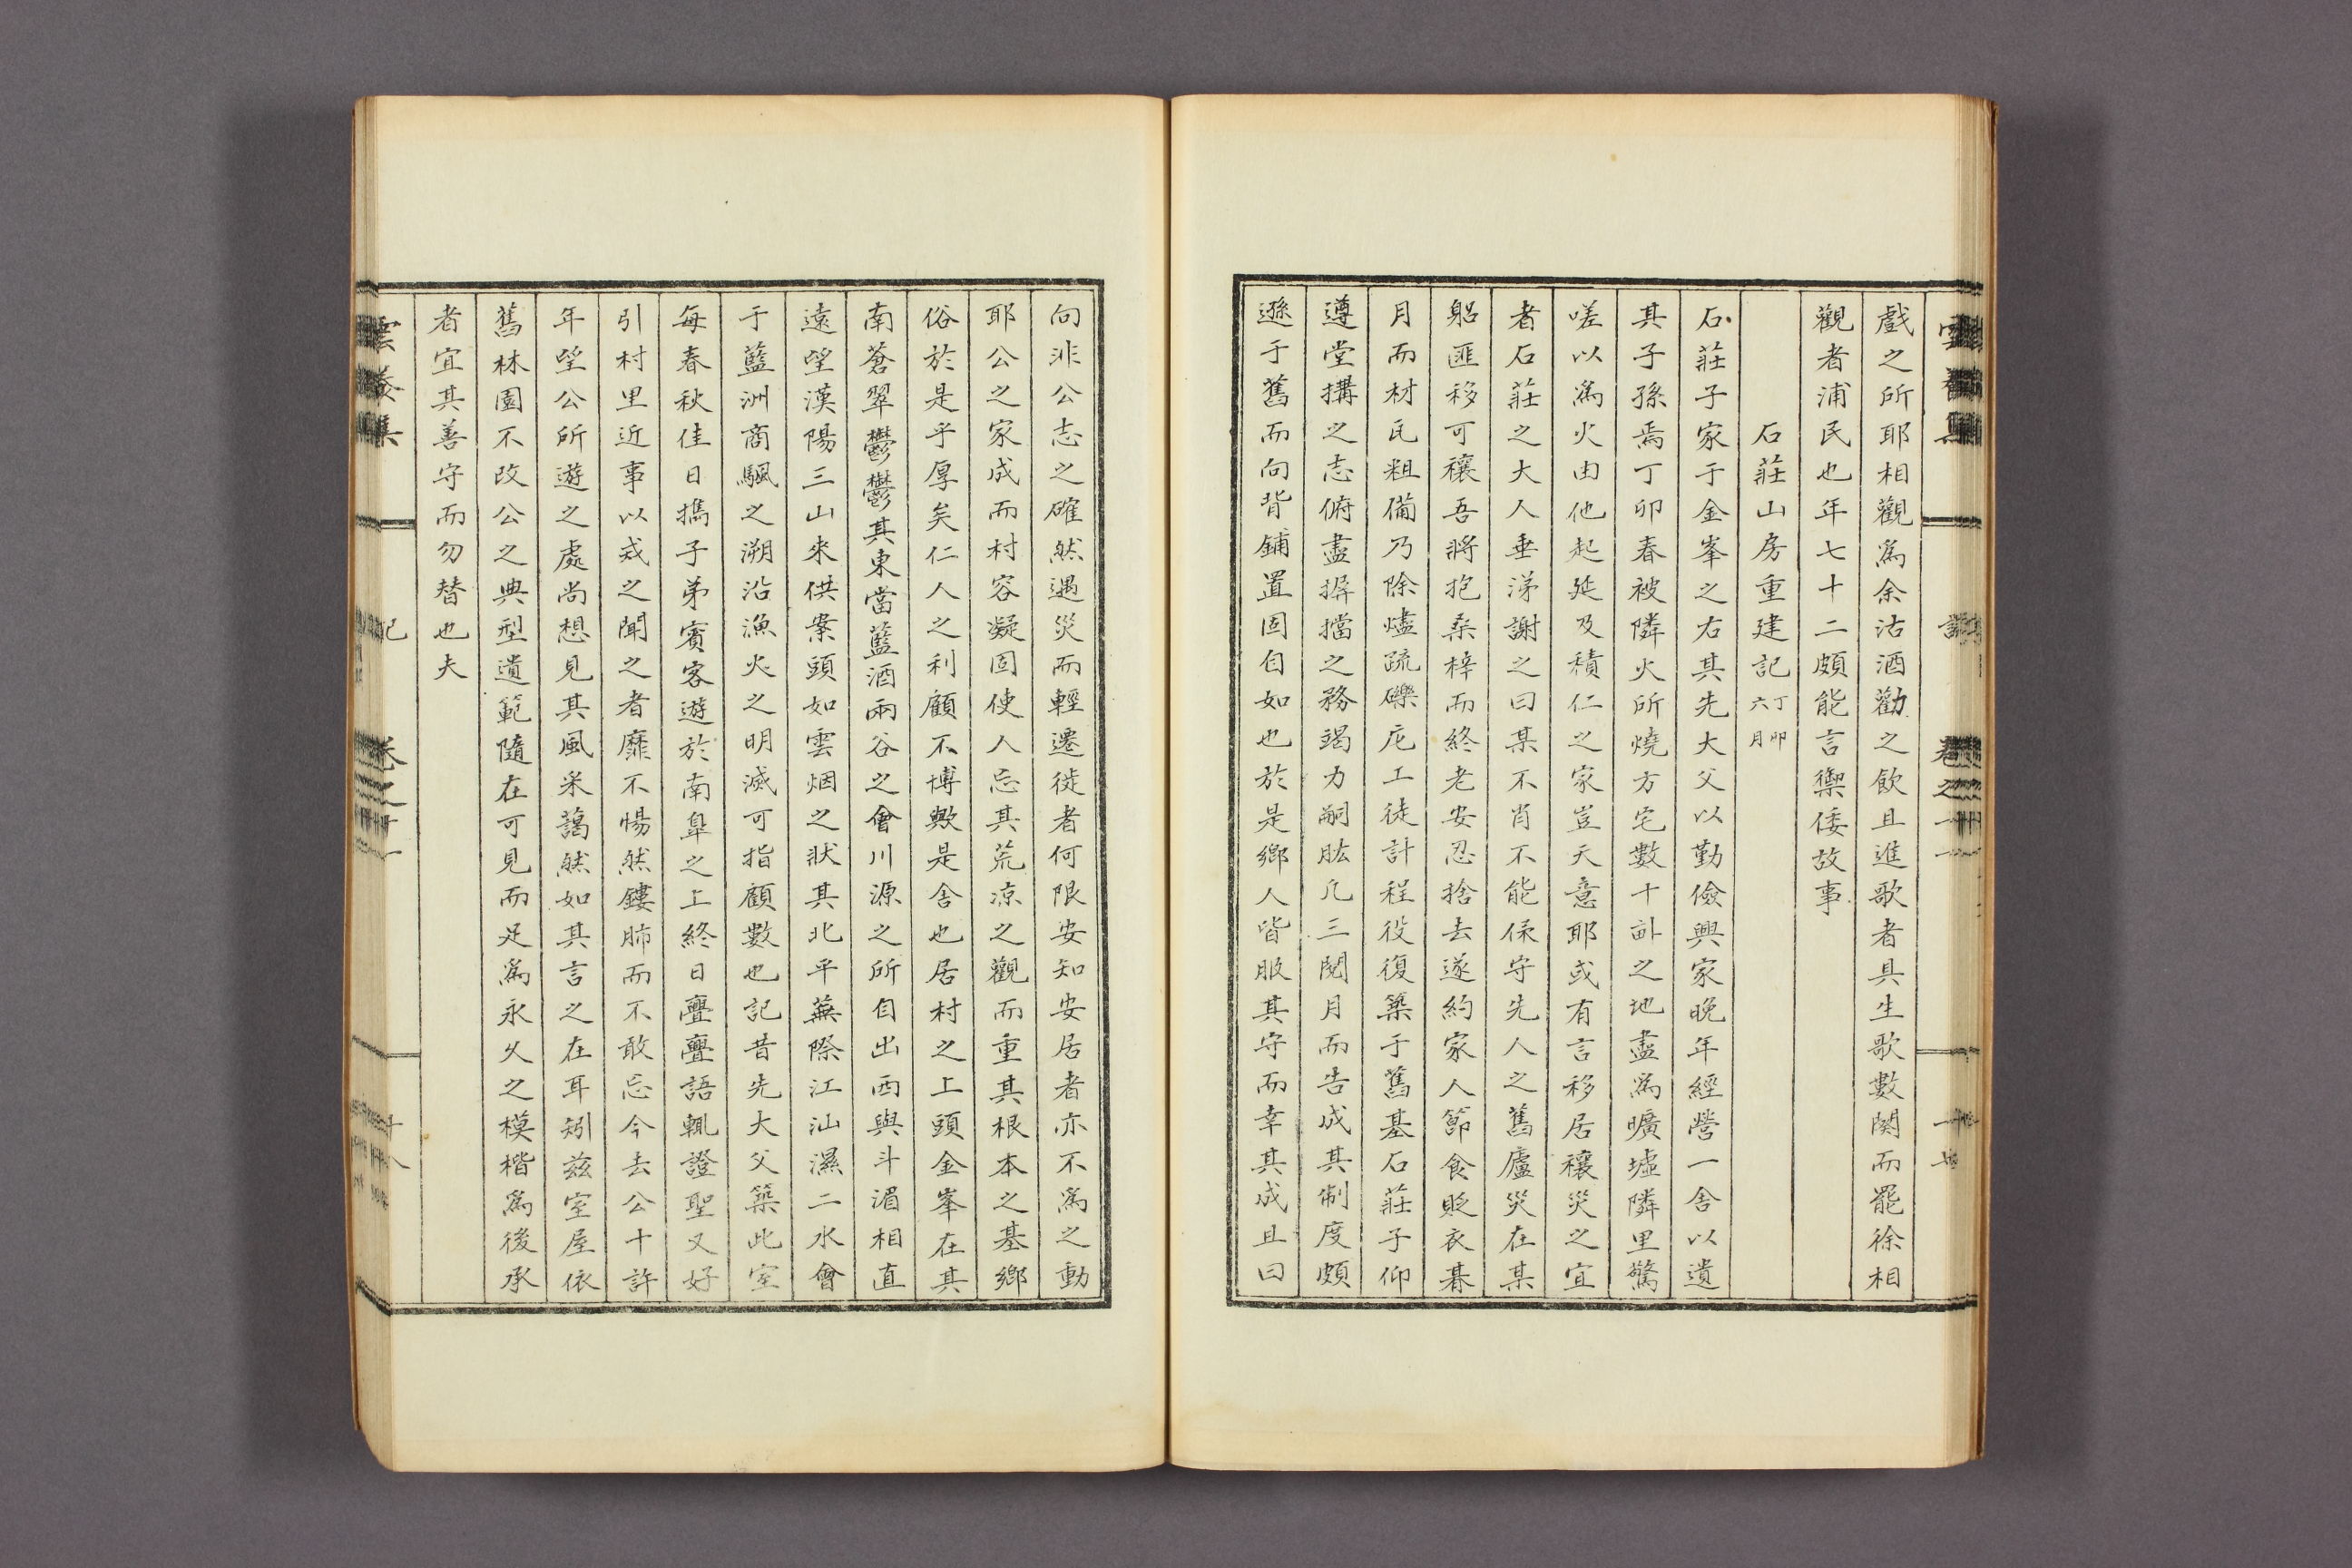 戲之所耶相觀爲余沽酒勸之飮且進歌者具生歌數闋而罷徐相
觀者浦民也年七十二頗能言禦倭故事
石莊山房重建記 丁卯六月
石莊子家于金峯之右其先大父以勤儉興家晩年經營一舍以遺
其子孫焉丁卯春被隣火所燒方宅數十畝之地盡爲曠墟隣里驚
嗟以爲火由他起延及積仁之家豈天意耶或有言移居禳災之宜
者石莊之大人垂涕謝之曰某不肖不能保守先人之舊廬災在某
躬匪移可禳吾將抱桑梓而終老安忍捨去遂約家人節食貶衣朞
月而材瓦粗備乃除燼疏礫庀工徒計程役復築于舊基石莊子仰
遵堂搆之志俯盡摒擋之務竭力嗣肱凡三閱月而告成其制度頗
遜于舊而向背鋪置固自如也於是鄕人皆服其守而幸其成且曰
向非公志之確然遇災而輕遷徙者何限安知安居者亦不爲之動
耶公之家成而村容凝固使人忘其荒凉之觀而重其根本之基鄕
俗於是乎厚矣仁人之利顧不博歟是舍也居村之上頭金峯在其
南蒼翠鬱鬱其東當藍酒兩谷之會川源之所自出西與斗湄相直
遠望漢陽三山來供案頭如雲烟之狀其北平蕪際江汕濕二水會
于藍洲商颿之溯沿漁火之明滅可指顧數也記昔先大父築此室
每春秋佳日携子弟賓客遊於南皐之上終日亹亹語輒證聖又好
引村里近事以戒之聞之者靡不惕然鏤肺而不敢忘今去公十許
年望公所遊之處尚想見其風采藹然如其言之在耳矧玆室屋依
舊林園不改公之典型遺範隨在可見而足爲永久之模楷爲後承
者宜其善守而勿替也夫
雲養集 記 卷之十一 十八